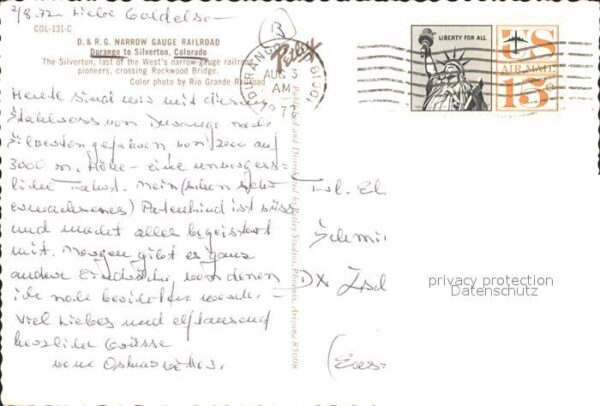 2/8.72 Liebe Goidelse-
COL-131-C
D. & R. G. NARROW GAUGE RAILROAD
Durango to Silverton, Colorado
The Silverton, last of the West's narrow gauge railroad
pioneers, crossing Rockwood Bridge.
Color photo by Rio Grande Railroad
Petley
DURANGO
AUG 3
AM
LIBERTY FOR ALL
US
AIR MAIL
15
Heute sind wir mit diesem
Stahlross von Durango nach
Silverton gefahren von 2000 auf
3000 m. Höhe - eine unverges=
liche Fahrt. Mein (schon sehr
erwachsenes) Patenkind ist süss
und macht alles begeistert
mit. Morgen gibt es ganz
andere Eindrücke von denen
ich noch berichten werde. -
Viel Liebes und elftausend
herzliche Grüsse
Frl. El
Schmi
DX
privacy protection
Datenschutz